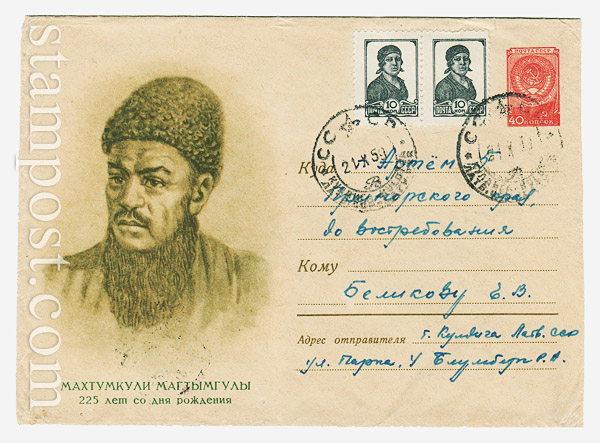 stampost.com
ПОЧТА СССР
10 КОП. 10 КОП.
40 КОПЕЕК
21 X 5
Куда Артём
Приморского края
до востребования
Кому
Беликову Е. В.
Адрес отправителя г. Кулдига Латв. сср
ул. Парка, У Блумберг
МАХТУМКУЛИ МАГТЫМГУЛЫ
225 лет со дня рождения